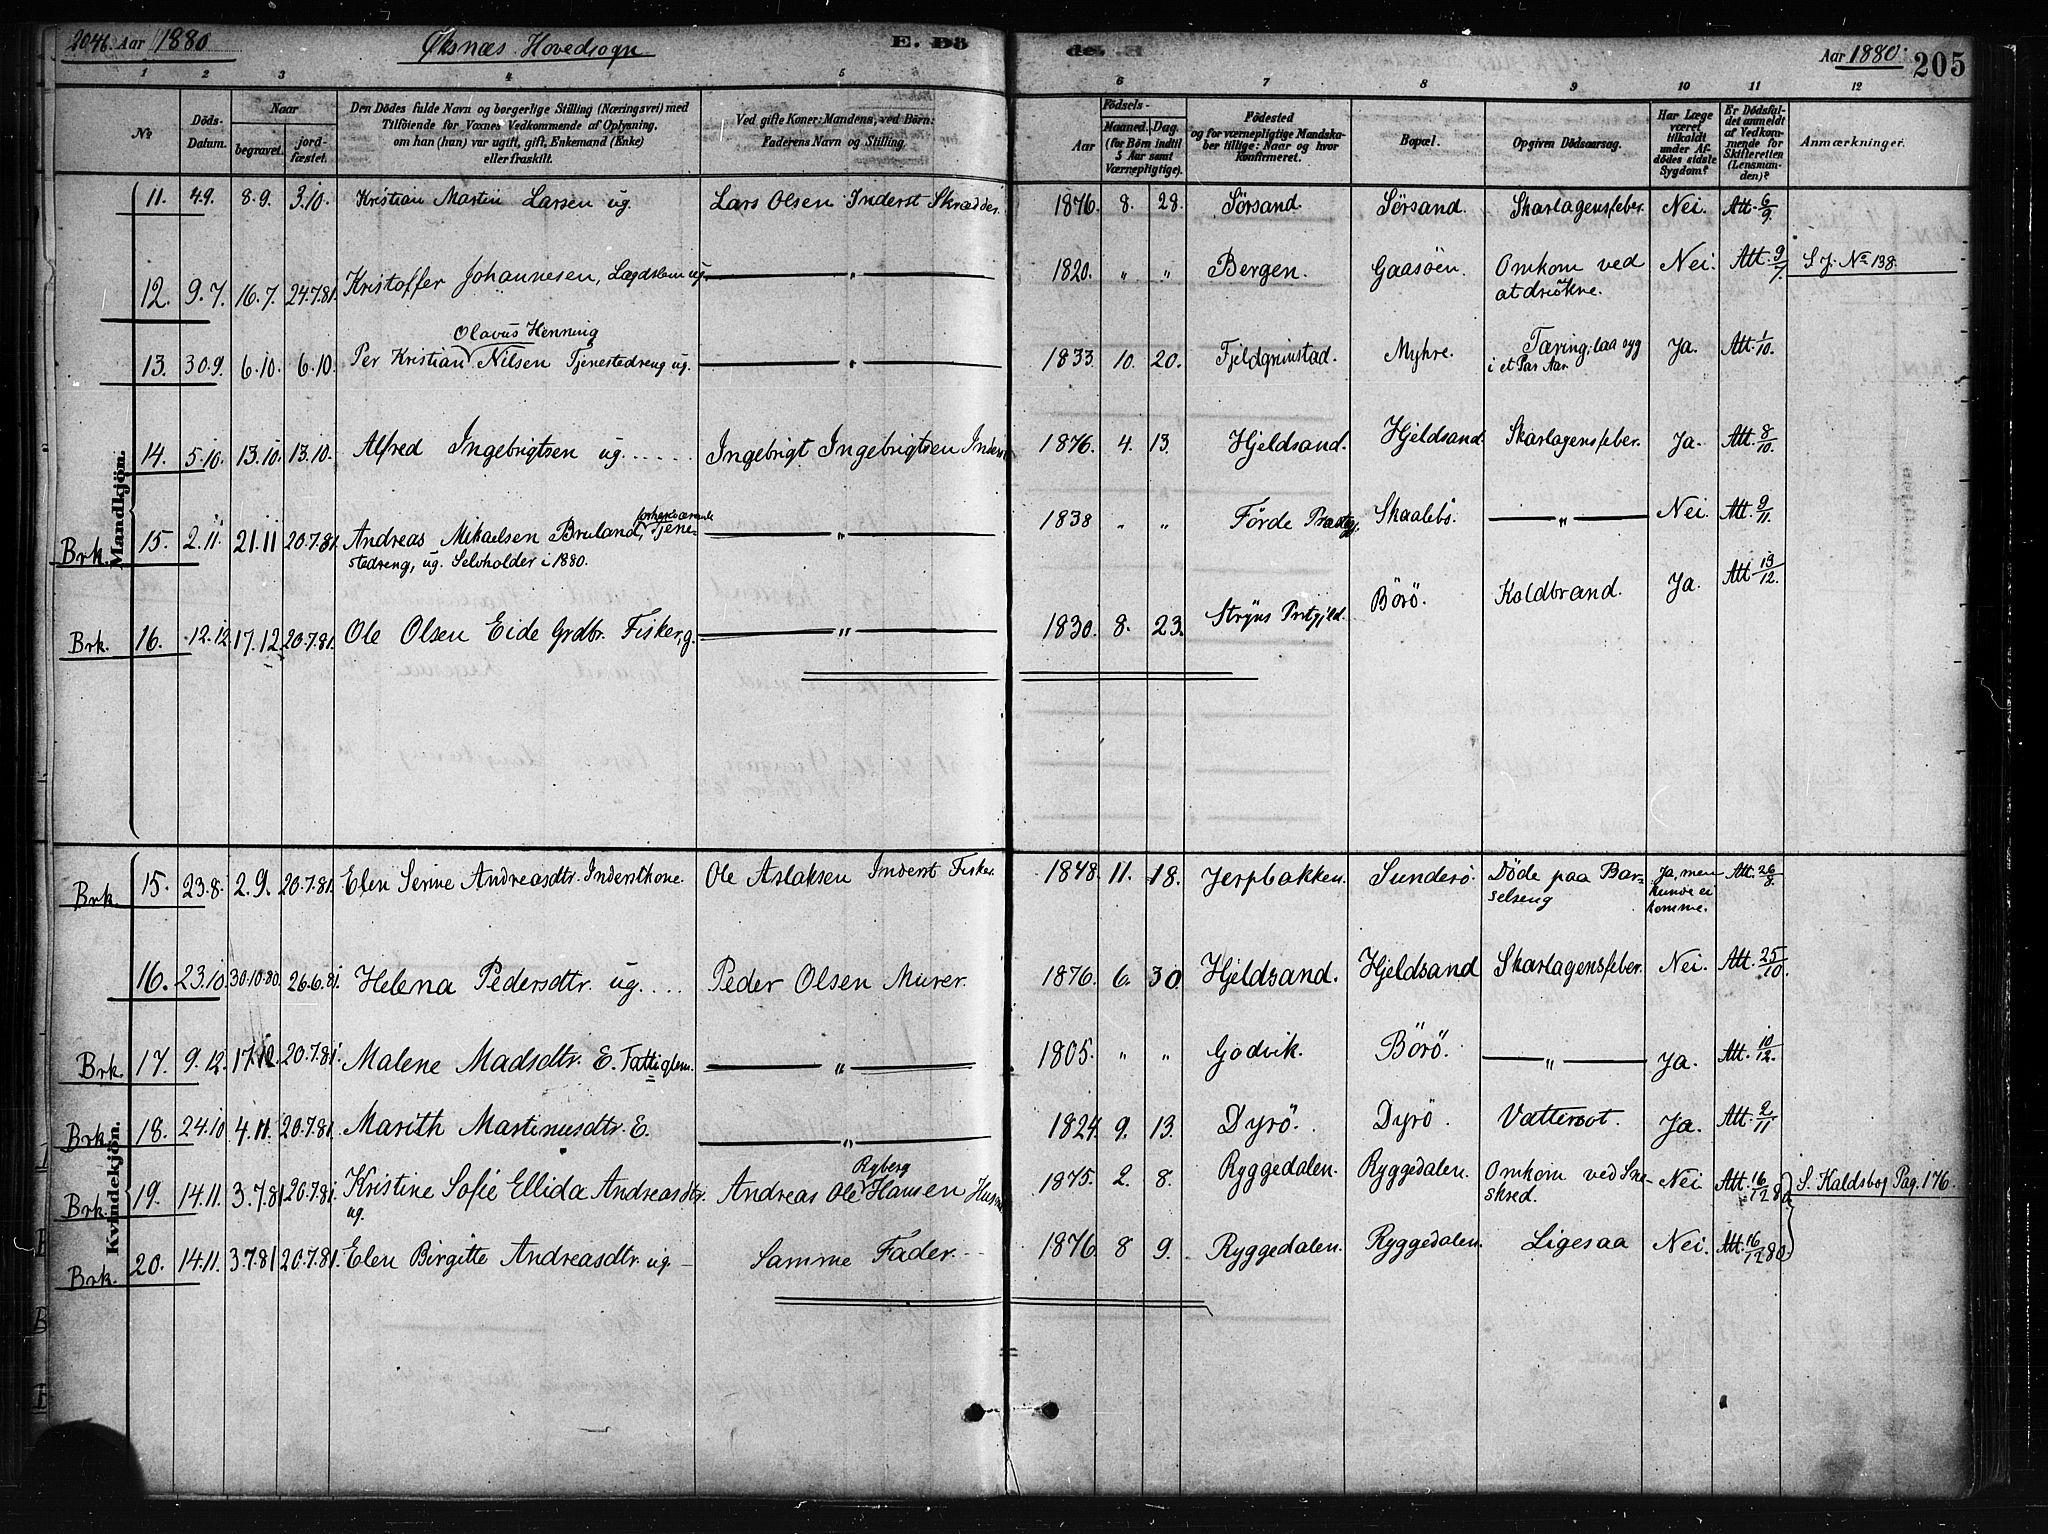 204b. Aar 1880
Øksnæs Hovedsogn
E. Dö
de. E
Aar 1880. 205
1 2 3 4 5 6 7 8 9 10 11 12
No
Döds-
Datum.
Naar
begravet.
jord-
fæstet.
Den Dödes fulde Navn og borgerlige Stilling (Næringsvei) med
Tilföiende for Voxnes Vedkommende af Oplysning,
om han (hun) var ugift, gift, Enkemand (Enke)
eller fraskilt.
Ved gifte Koner: Mandens, ved Börn:
Faderens Navn og Stilling.
Födsels-
Aar
Maaned.
Dag.
(for Börn indtil
5 Aar samt
Værnepligtige).
Födested
og for værnepligtige Mandska-
ber tillige: Naar og hvor
konfirmeret.
Bopæl.
Opgiven Dödsaarsag.
Har Læge
været
tilkaldt
under Af-
dödes sidste
Sygdom?
Er Dödsfal-
det anmeldt
af Vedkom-
mende for
Skifteretten
(Lensman-
den)?
Anmærkninger.
Mandkjön.
11. 4.9. 8.9. 3.10. Kristian Martin Larsen ug. Lars Olsen Inderst Skrædder. 1876. 8. 28. Sörsand. Sörsand. Skarlagensfeber. Nei. Att. 6/9.
12. 9.7. 16.7. 24.7.81. Kristoffer Johannesen, Lægdslem ug. — " — 1820. " " Bergen. Gaasöen. Omkom ved Nei. Att. 9/7. S. J. No 138.
at drukne.
Olavus Henning
13. 30.9. 6.10. 6.10. Per Kristian Nilsen Tjenestedreng ug. — " — 1833. 10. 20. Fjeldgrinstad. Myhre. Tæring, laa syg Ja. Att. 1/10.
i et Par Aar.
14. 5.10. 13.10. 13.10. Alfred Ingebrigtsen ug. Ingebrigt Ingebrigtsen Inderst 1876. 4. 13. Hjeldsand. Hjeldsand. Skarlagensfeber. Ja. Att. 8/10.
forhenværende
Brk. 15. 2.11. 21.11 20.7.81. Andreas Mikaelsen Bruland, Tjene- — " — 1838 " " Förde Præstgj. Skaalebr. — " — Nei. Att. 9/11.
stedreng, ug. Selvholder i 1880.
Brk. 16. 12.12. 17.12. 20.7.81. Ole Olsen Eide Grdbr. Fisker, g. — " — 1830. 8. 23. Stryns Prstgjld. Börö. Koldbrand. Ja. Att. 13/12.
Kvindekjön.
Brk. 15. 23.8. 2.9. 20.7.81. Elen Serine Andreasdtr.Indersthone. Ole Aslaksen Inderst Fisker. 1848. 11. 18. Jerpbakken. Sunderö. Döde paa Bar- Ja, men Att. 26/8.
selseng kunde ei
komme.
16. 23.10. 30.10.80. 26.6.81. Helena Pedersdtr. ug. Peder Olsen Murer. 1876. 6. 30 Hjeldsand. Hjeldsand Skarlagensfeber. Nei. Att. 25/10.
Brk. 17. 9.12. 17.12. 20.7.81. Malene Madsdtr. E. Fattiglem. — " — 1805. " " Godvik. Börö. — " — Ja. Att. 10/12.
Brk. 18. 24.10 4.11. 20.7.81. Marith Martinusdtr. E. — " — 1824. 9. 13. Dyrö. Dyrö. Vattersot. Ja. Att. 2/11
Ryberg
Brk. 19. 14.11. 3.7.81 20.7.81. Kristine Sofie Ellida Andreasdtr. Andreas Ole Hansen Husm. 1875. 2. 8. Ryggedalen. Ryggedalen. Omkom ved Sne- Nei Att. 16/12 80. S. Kaldsbog Pag. 176.
ug. skred.
Brk. 20. 14.11. 3.7.81 20.7.81. Elen Birgitte Andreasdtr. ug. Samme Fader. 1876. 8 9. Ryggedalen. Ryggedalen. Ligesaa Nei. Att. 16/12 80.